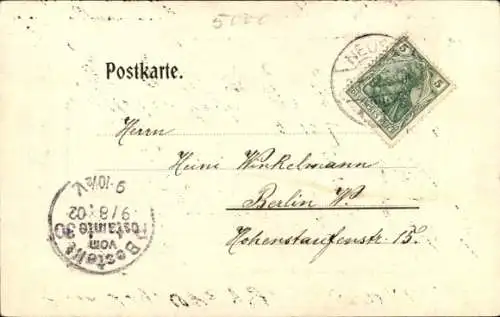 Postkarte.
NEUS
5 5
DEUTSCHES REICH
Herrn
Heinr Winkelmann
Berlin W.
Hohenstaufenstr. 15.
Bestellt
vom
Postamte 30
9/8 02
9-10½V.